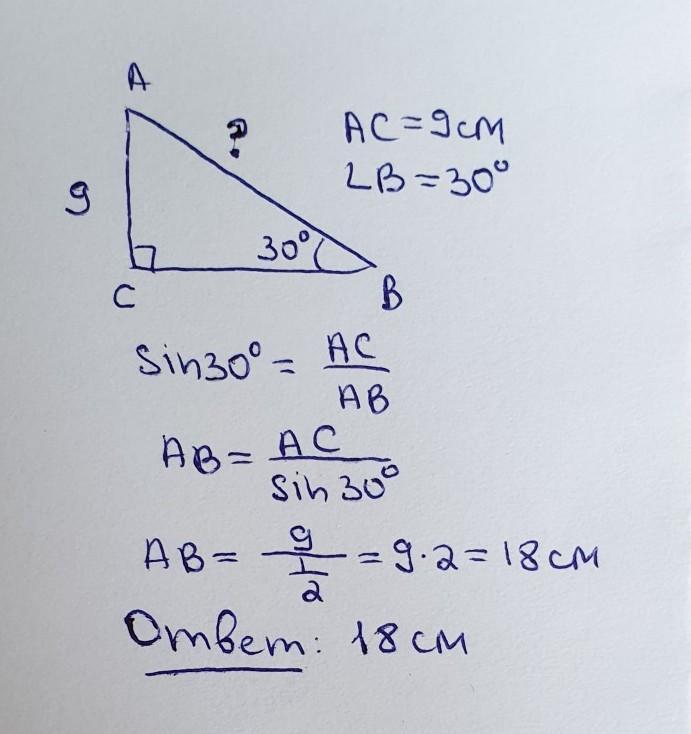 A
?
AC = 9 см
∠B = 30°
9
30°
C
B
Sin30° = AC/AB
AB = AC/Sin30°
AB = 9/(1/2) = 9·2 = 18 см
Ответ: 18 см